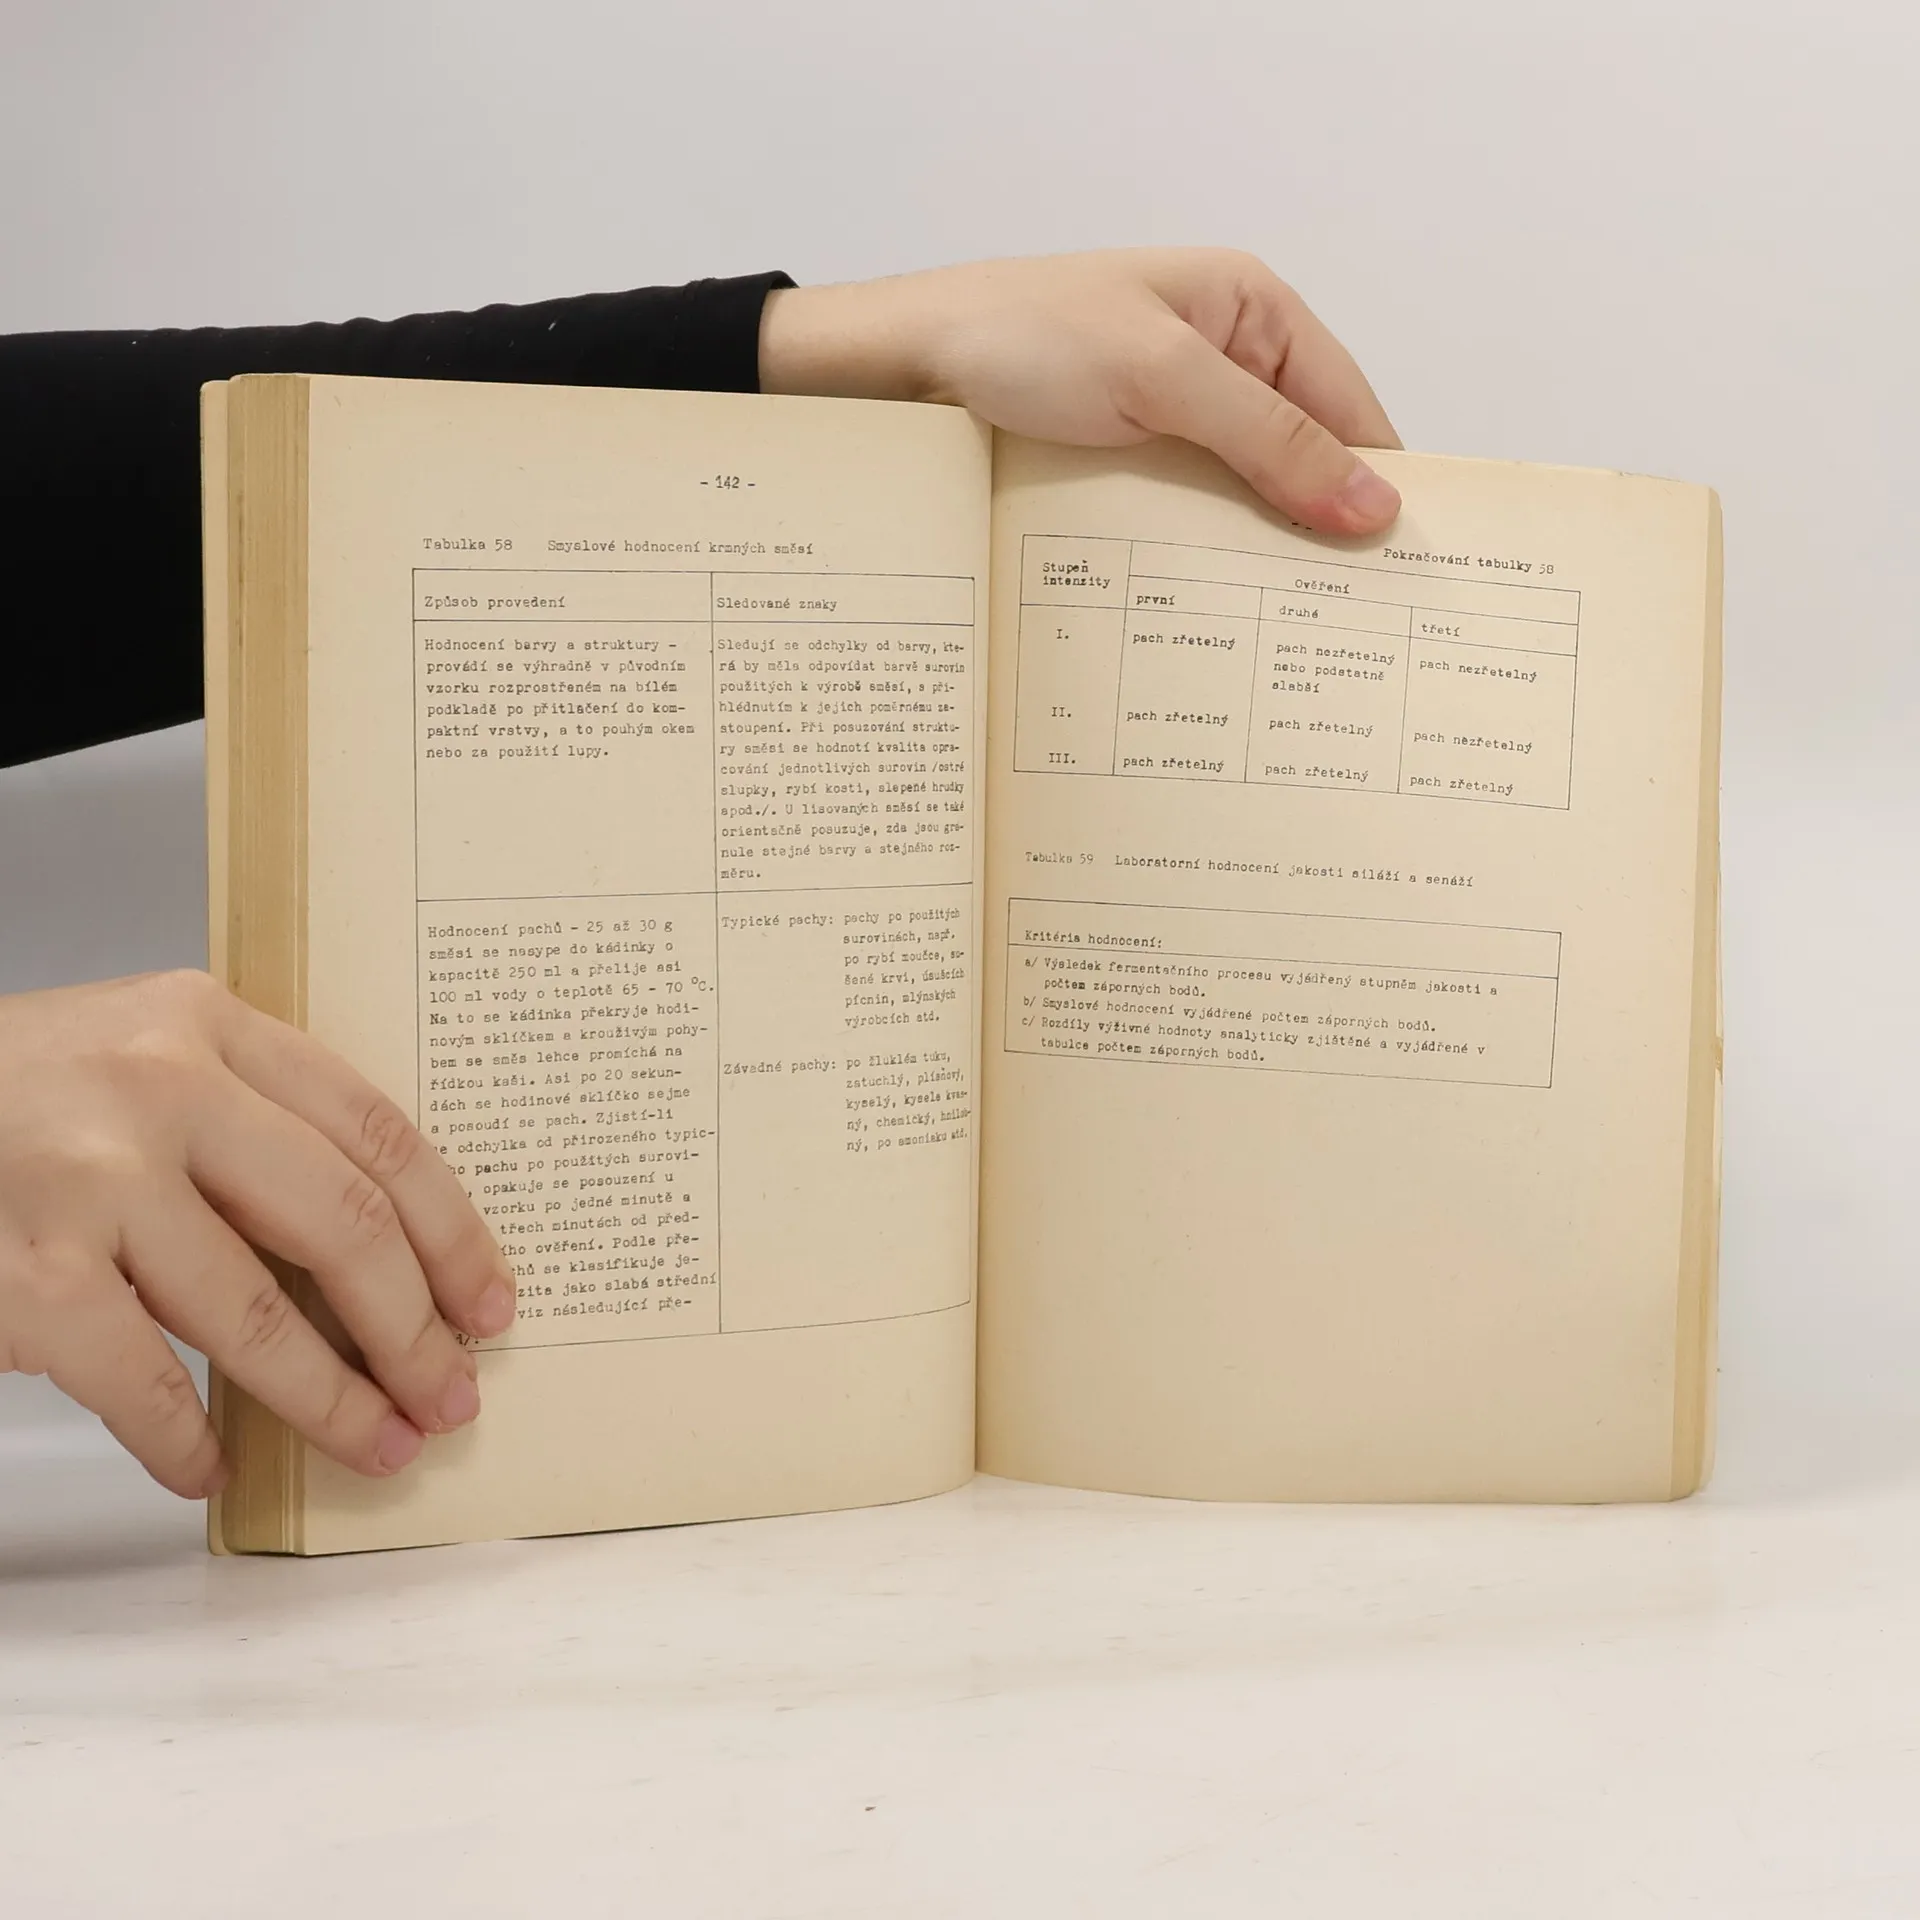 - 142 -
Tabulka 58 Smyslové hodnocení krmných směsí
Způsob provedení
Hodnocení barvy a struktury -
provádí se výhradně v původním
vzorku rozprostřeném na bílém
podkladě po přitlačení do kom-
paktní vrstvy, a to pouhým okem
nebo za použití lupy.
Sledované znaky
Sledují se odchylky od barvy, kte-
rá by měla odpovídat barvě surovin
použitých k výrobě směsí, s při-
hlédnutím k jejich poměrnému za-
stoupení. Při posuzování struktu-
ry směsi se hodnotí kvalita opra-
cování jednotlivých surovin /ostré
slupky, rybí kosti, slepené hrudky
apod./. U lisovaných směsí se také
orientačně posuzuje, zda jsou gra-
nule stejné barvy a stejného roz-
měru.
Hodnocení pachů - 25 až 30 g
směsi se nasype do kádinky o
kapacitě 250 ml a přelije asi
100 ml vody o teplotě 65 - 70 °C.
Na to se kádinka překryje hodi-
novým sklíčkem a krouživým pohy-
bem se směs lehce promíchá na
řídkou kaši. Asi po 20 sekun-
dách se hodinové sklíčko sejme
a posoudí se pach. Zjistí-li
se odchylka od přirozeného typic-
ho pachu po použitých surovi-
, opakuje se posouzení u
vzorku po jedné minutě a
třech minutách od před-
ího ověření. Podle pře-
chů se klasifikuje je-
zita jako slabá střední
viz následující pře-
d/.
Typické pachy: pachy po použitých
surovinách, např.
po rybí moučce, su-
šené krvi, úsušcích
pícnin, mlýnských
výrobcích atd.
Závadné pachy: po žluklém tuku,
zatuchlý, plísňový,
kyselý, kysele kvas-
ný, chemický, hnilob-
ný, po amoniaku atd.
Pokračování tabulky 58
Stupeň
intenzity
Ověření
první
druhé
třetí
I.
pach zřetelný
pach nezřetelný
nebo podstatně
slabší
pach nezřetelný
II.
pach zřetelný
pach zřetelný
pach nezřetelný
III.
pach zřetelný
pach zřetelný
pach zřetelný
Tabulka 59 Laboratorní hodnocení jakosti siláží a senáží
Kritéria hodnocení:
a/ Výsledek fermentačního procesu vyjádřený stupněm jakosti a
počtem záporných bodů.
b/ Smyslové hodnocení vyjádřené počtem záporných bodů.
c/ Rozdíly výživné hodnoty analyticky zjištěné a vyjádřené v
tabulce počtem záporných bodů.